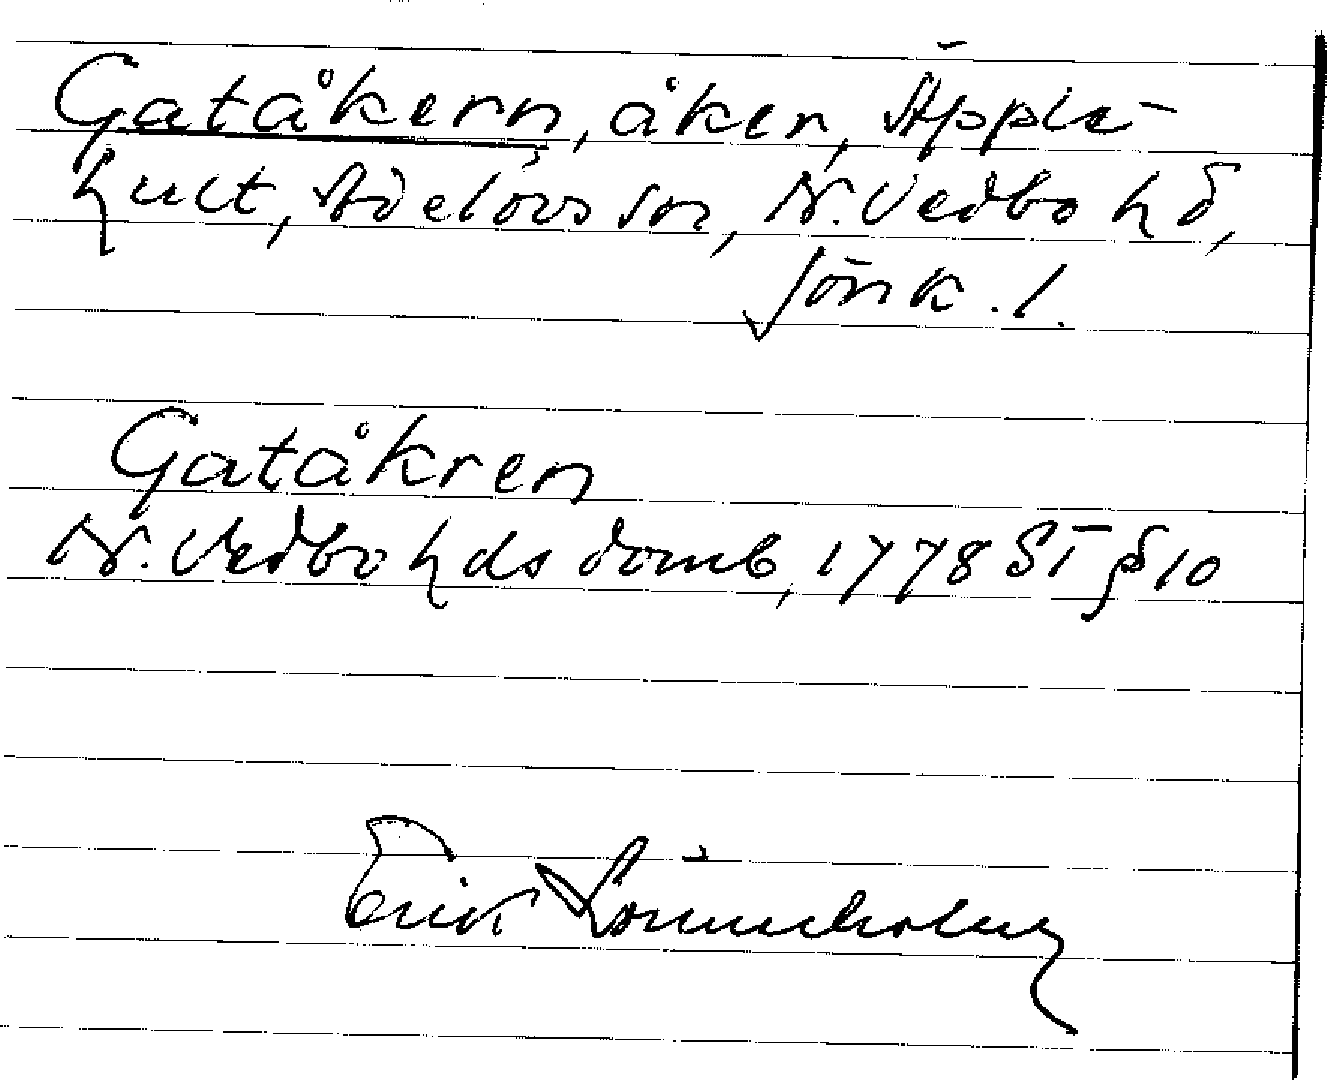 Gatåkern, åker, Äpple-
hult, Adelövs sn, N. Vedbo hd,
Jönk. l.
Gatåkren
N. Vedbo hds domb, 1778 ST § 10
Erik Lönnerholm